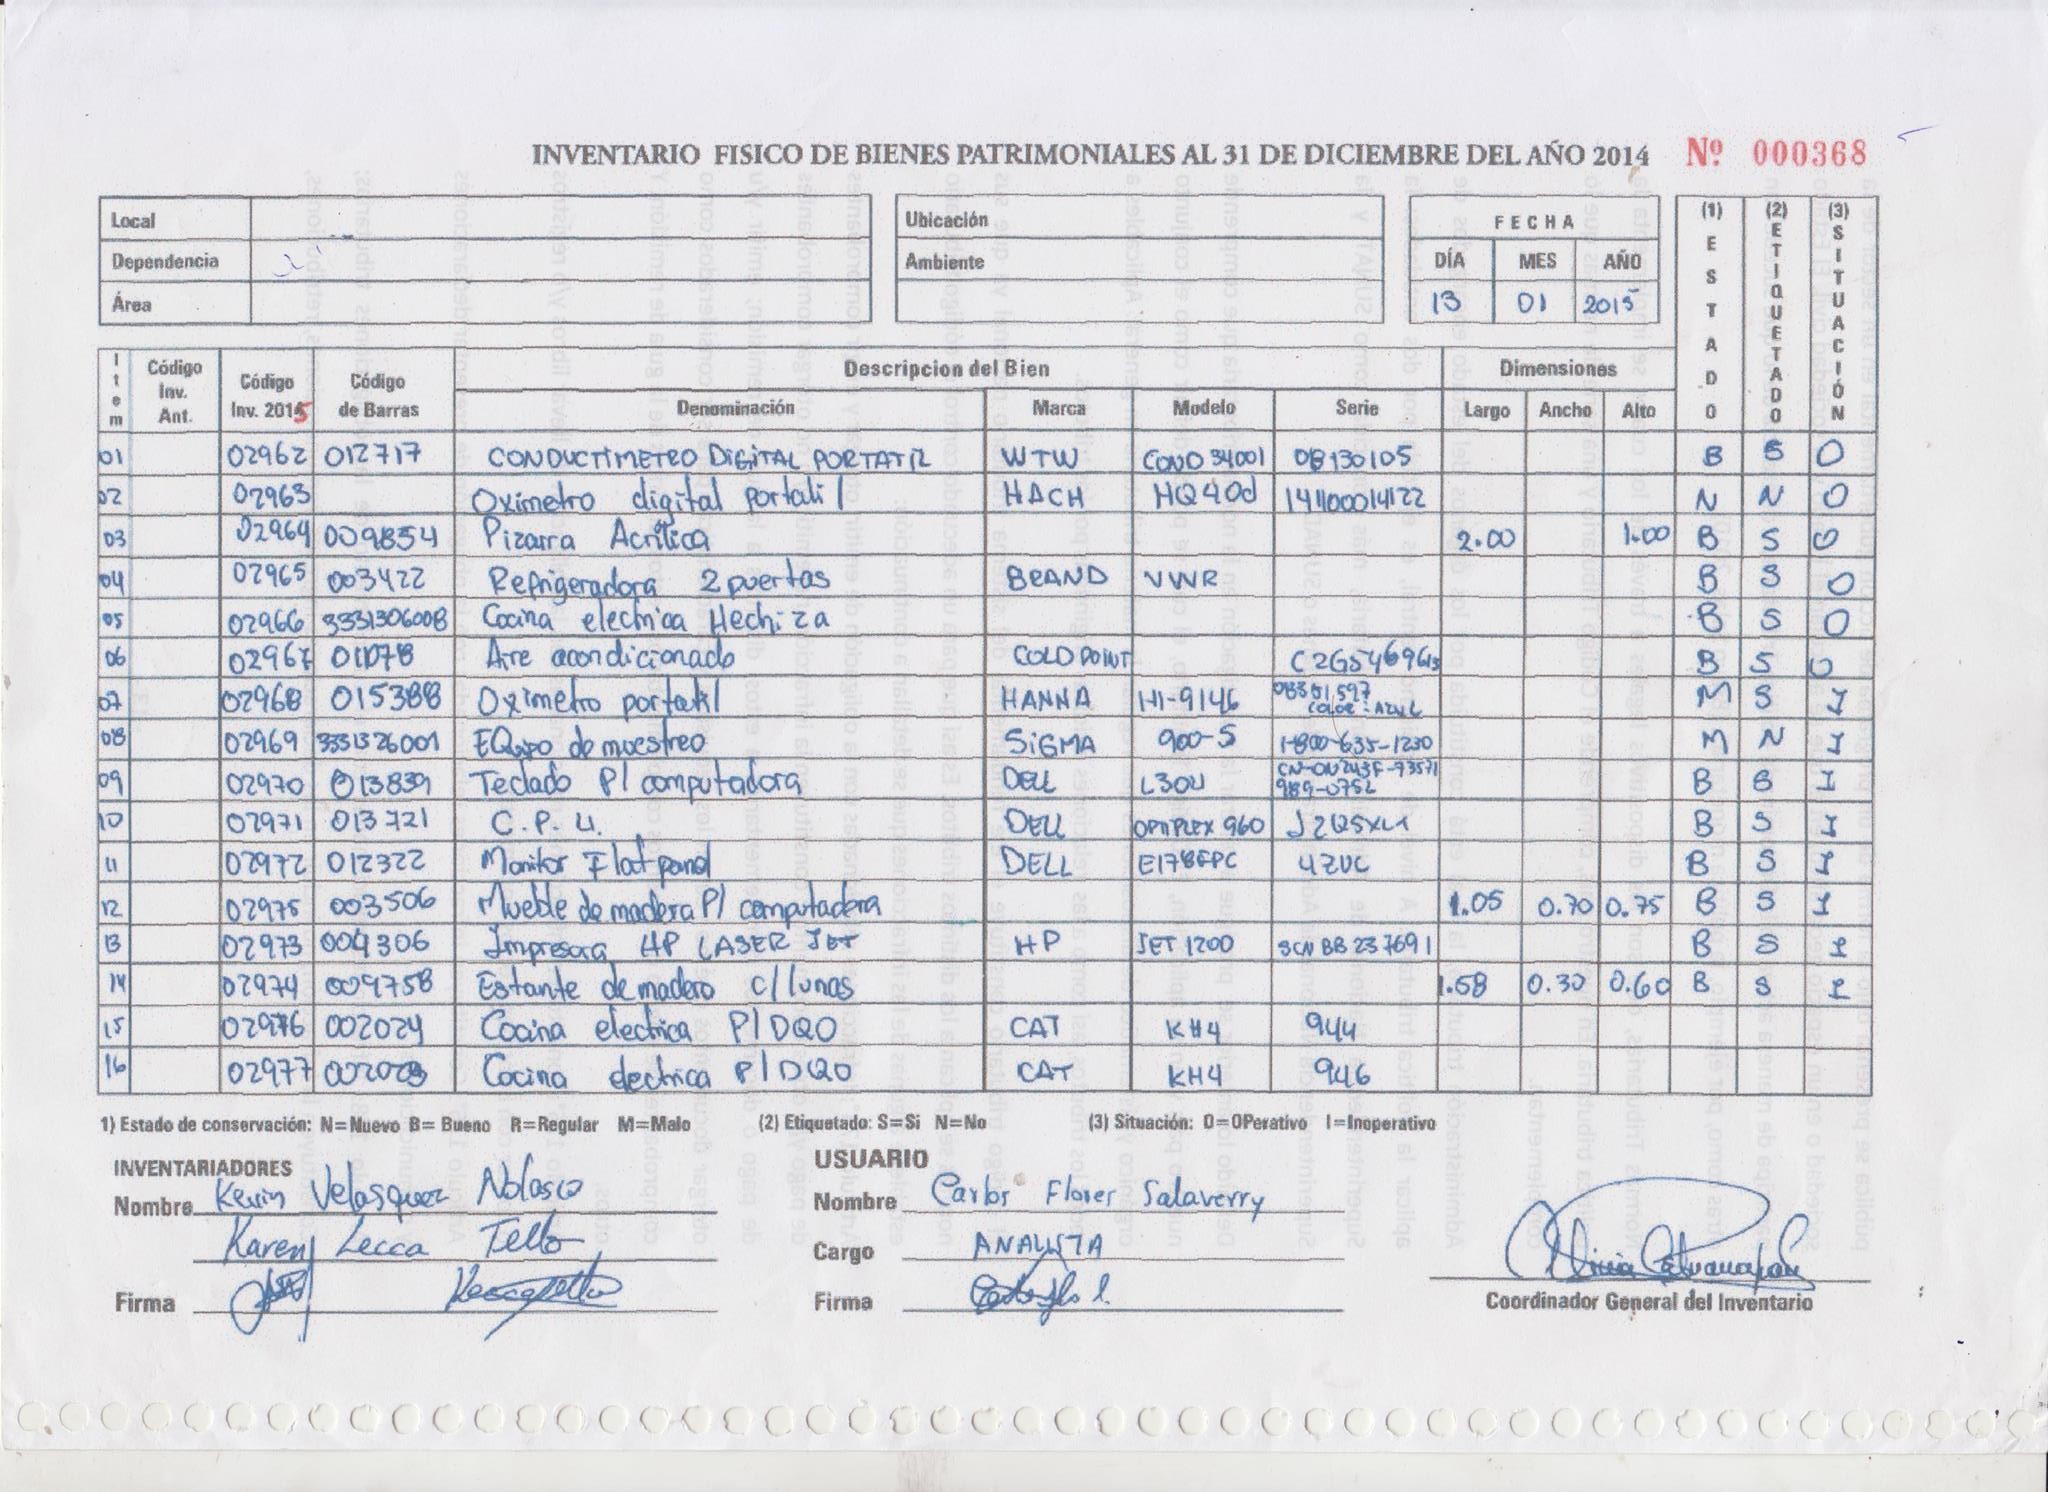 INVENTARIO FISICO DE BIENES PATRIMONIALES AL 31 DE DICIEMBRE DEL AÑO 2014 Nº 000368
Local
Dependencia
Área
Ubicación
Ambiente
FECHA
DÍA MES AÑO
13 01 2015
(1) ESTADO
(2) ETIQUETADO
(3) SITUACIÓN
Item Código Inv. Ant. Código Inv. 2015 Código de Barras Descripcion del Bien Dimensiones
Denominación Marca Modelo Serie Largo Ancho Alto
01 02962 012717 CONDUCTIMETRO DIGITAL PORTATIL WTW COND 3400i 08130105 B S O
02 02963 Oximetro digital portatil HACH HQ40d 141100014122 N N O
03 02964 009854 Pizarra Acrilica 2.00 1.00 B S O
04 02965 003422 Refrigeradora 2 puertas BRAND VWR B S O
05 02966 3331306008 Cocina electrica Hechiza B S O
06 02967 Aire acondicionado COLD POINT B S O
07 02968 015388 Oximetro portatil HANNA HI-9146 08351597 COLOR: AZUL M S I
08 02969 3331326001 EQuipo de muestreo SiGMA 900-S 1-800-635-1230 M N I
09 02970 013839 Teclado P/ computadora DELL L30U B S I
10 02971 013721 C.P.U. DELL OPTIPLEX 960 B S I
11 02972 012322 Monitor Flat panel DELL E178FPC B S I
12 02975 003506 Mueble de madera P/ computadora 1.05 0.70 0.75 B S I
13 02973 004306 Impresora HP LASER JET HP JET 1200 SCNBB237691 B S I
14 02974 009758 Estante de madera c/ lunas 1.58 0.30 0.60 B S I
15 02976 002024 Cocina electrica P/DQO CAT KH4 944
16 02977 Cocina electrica P/DQO CAT KH4 946
1) Estado de conservación: N=Nuevo B= Bueno R=Regular M=Malo (2) Etiquetado: S=Si N=No (3) Situación: O=OPerativo I=Inoperativo
INVENTARIADORES
Nombre Kevin Velasquez Nolasco
Karen Lecca Tello
Firma
USUARIO
Nombre Carlos Flores Salaverry
Cargo ANALISTA
Firma
Coordinador General del Inventario